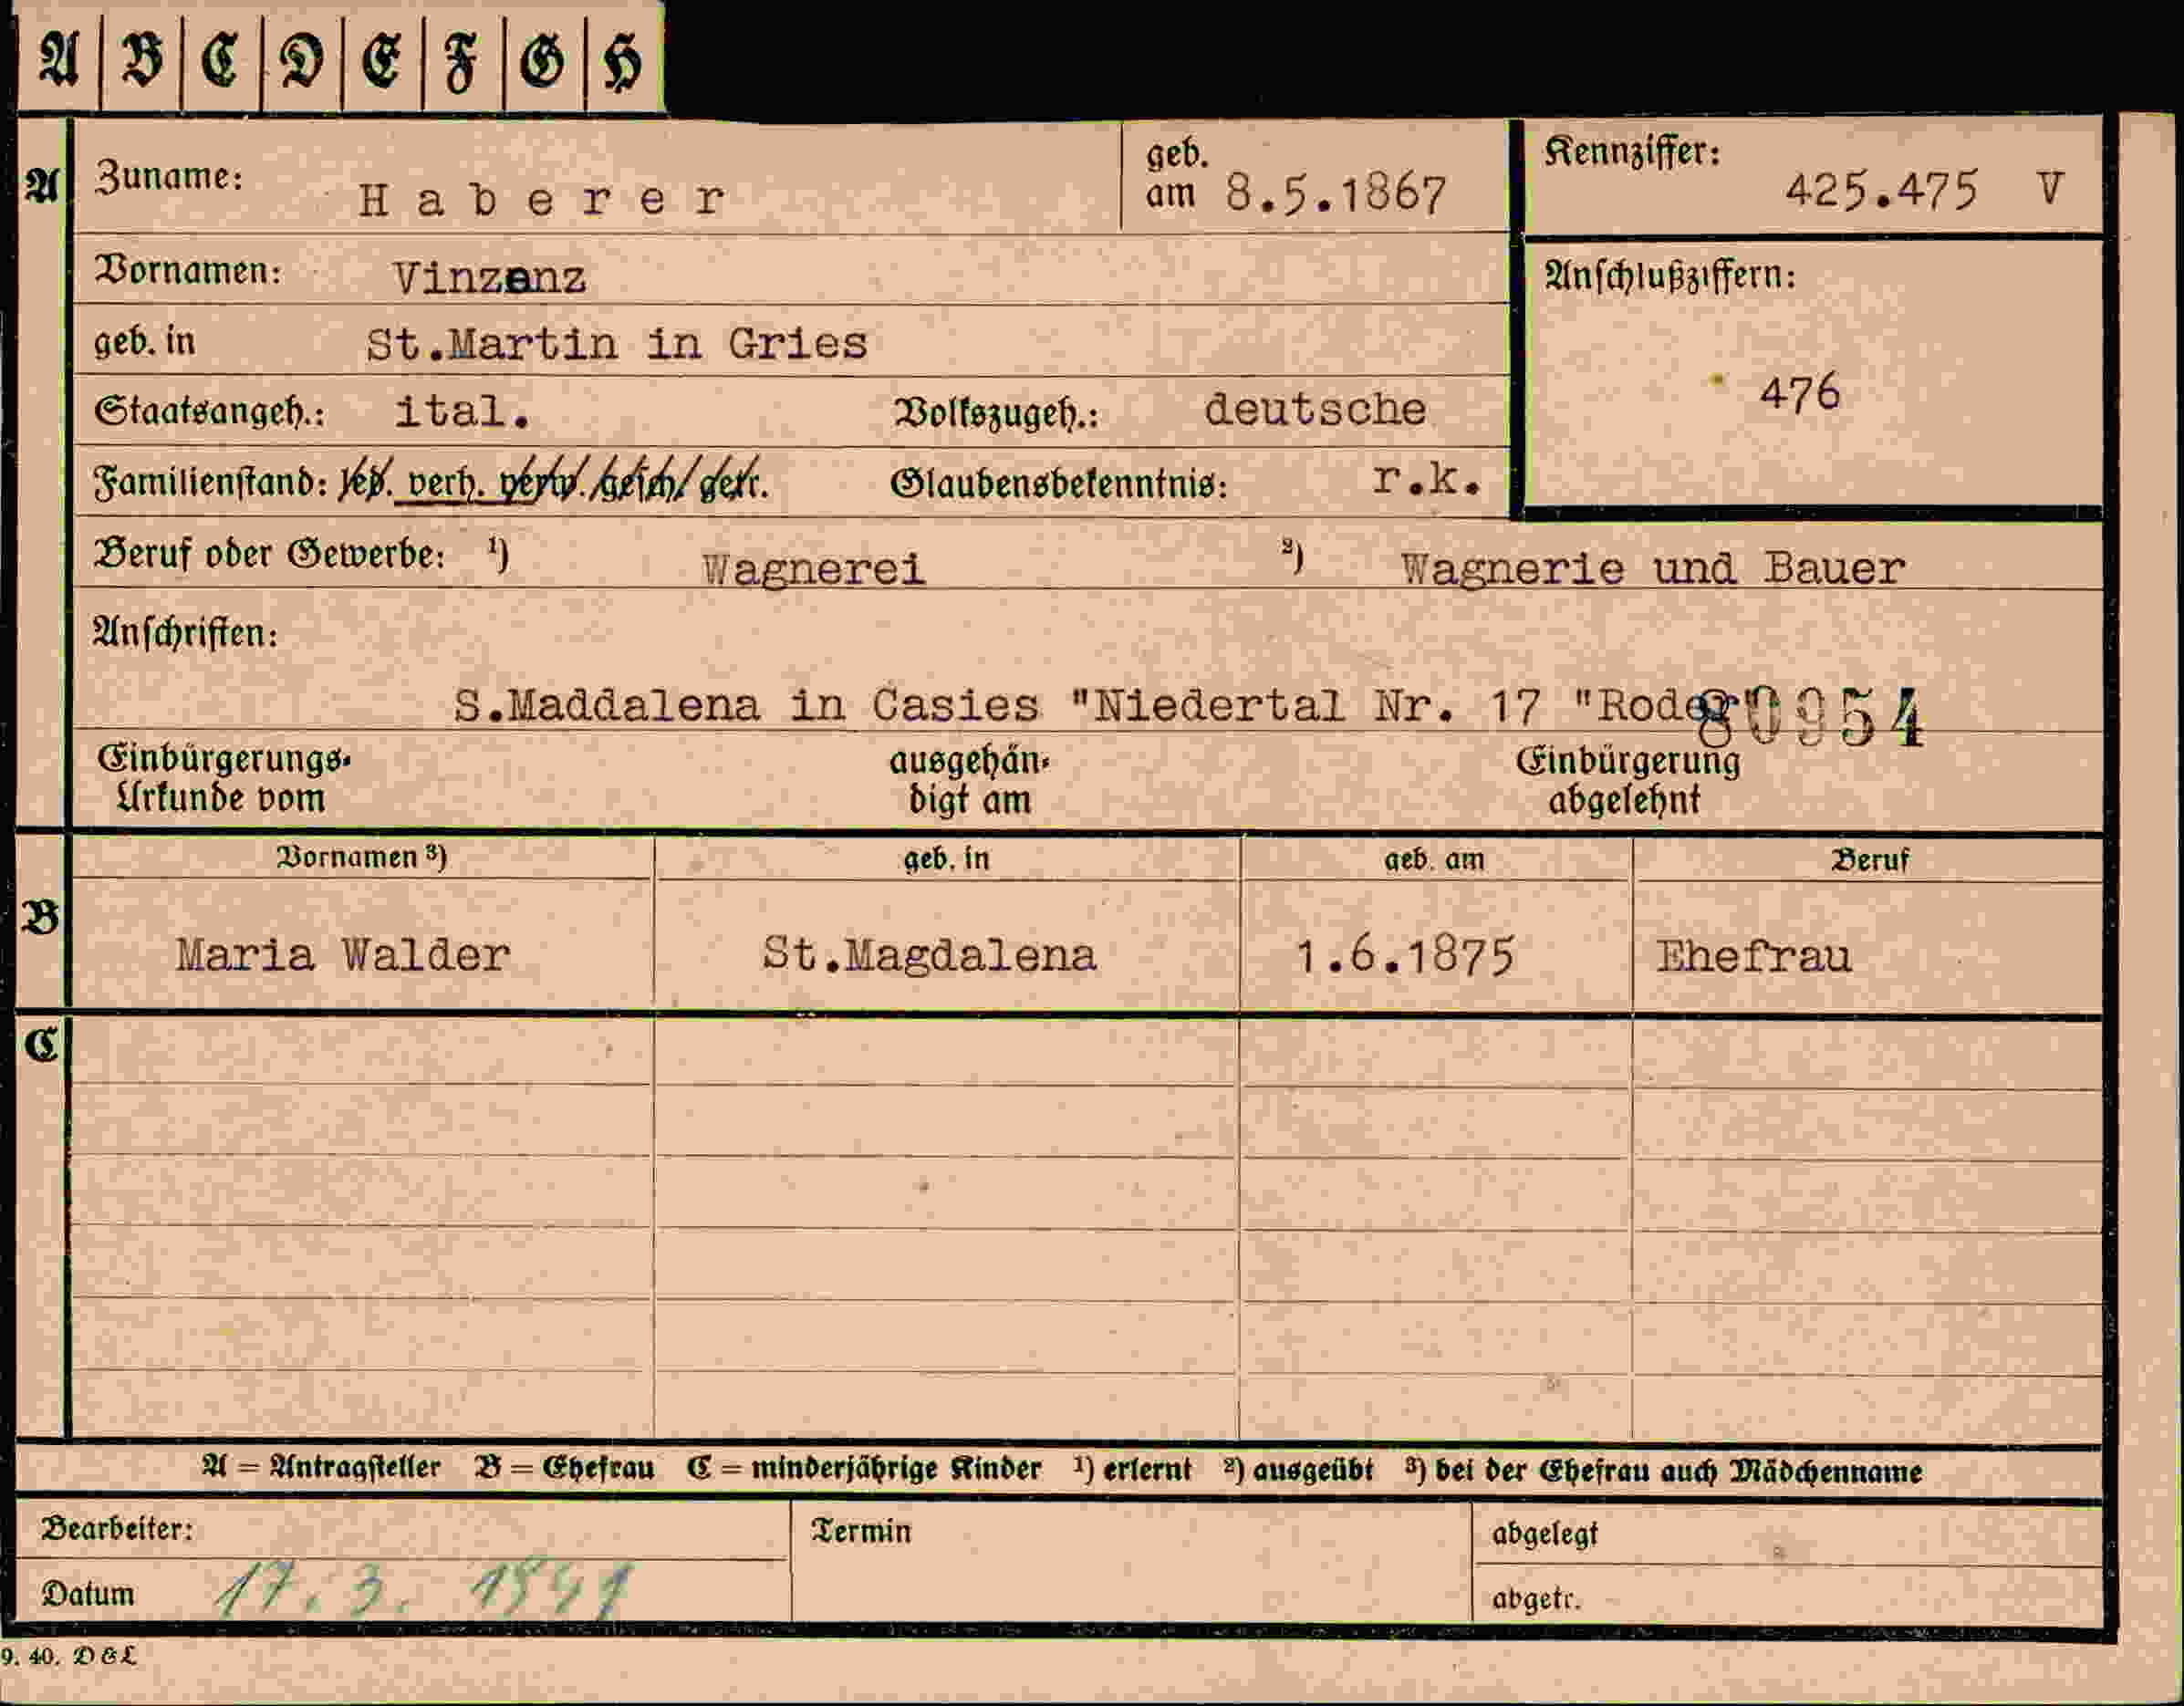 A B C D E F G H
A
Zuname: Haberer geb. am 8.5.1867
Kennziffer: 425.475 V
Vornamen: Vinzenz
Anschlußziffern: 476
geb. in St.Martin in Gries
Staatsangeh.: ital. Volkszugeh.: deutsche
Familienstand: led. verh. verw. gesch. getr. Glaubensbekenntnis: r.k.
Beruf oder Gewerbe: ¹) Wagnerei ²) Wagnerie und Bauer
Anschriften:
S.Maddalena in Casies "Niedertal Nr. 17 "Roder" 80954
Einbürgerungs- ausgehän- Einbürgerung
Urkunde vom digt am abgelehnt
B
Vornamen ³) geb. in geb. am Beruf
Maria Walder St.Magdalena 1.6.1875 Ehefrau
C
A = Antragsteller B = Ehefrau C = minderjährige Kinder ¹) erlernt ²) ausgeübt ³) bei der Ehefrau auch Mädchenname
Bearbeiter: Termin abgelegt
Datum 17. 3. 1941 abgetr.
9. 40. D&L